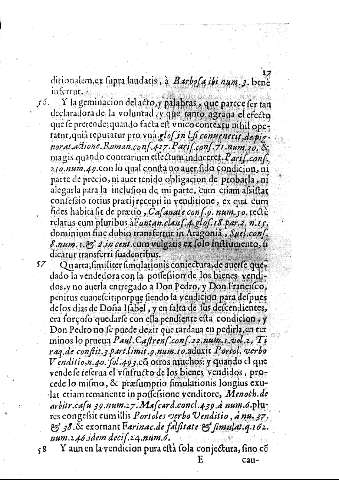 17
ditionalem, ex supra laudatis, à Barbosa ibi num. 3. bene
infertur.
56. Y la geminacion del acto, y palabras, que parece ser tan
declaradora de la voluntad, y que tanto agraua el efecto
que se pretende; quando facta est vnico contextu nihil ope-
ratur, quia reputatur pro vna glos. in l. si conuenerit, de pig-
norat. actione. Roman. cons. 427. Paris. cons. 71. num. 10. &
magis quando contrarium effectum induceret. Paris. cons.
210. num. 49. con lo qual consta no auer sido condicion, ni
parte de precio, ni auer tenido obligacion de probarla, ni
alegarla para la inclusion de mi parte, cum etiam assistat
confessio totius pratij recepti in venditione, ex qua cum
fides habita sit de pretio, Casanate cons. 9. num. 30. tecte
relatus cum pluribus à claus. 4. glos. 18. par. 2. n. 15.
dominium sinè dubio transfertur in Aragonia, cons.
8. num. 1. & 2. in cent. cum vulgatis ex solo instrumento, si
dicatur transferri suadentibus.
57 Quarta, similiter simulationis conjectura, de auerse que-
dado la vendedora con la possession de los bienes vendi-
dos, y no auerla entregado a Don Pedro, y Don Francisco,
penitus euanescit; porque siendo la vendicion para despues
de los dias de Doña Isabel, y en falta de sus descendientes,
era forçoso quedarse con ella pendiente esta condicion, y
Don Pedro no se puede dezir que tardaua en pedirla, en ter
minos lo prueua Paul. Castrens. cons. 22. num. 1. vol. 2. Ti
raq. de constit. 3. part. limit. 9. num. 10. aduxit Portol. verbo
Venditio, n. 40. sol. 493. cū otros muchos: y quando el que
vende se reserua el vsufructo de los bienes vendidos, pro-
cede lo mismo, & præsumptio simulationis longius exu-
lat etiam remanente in possessione venditore, Menoch. de
arbitr. casu 39. num. 27. Mascard. concl. 439. à num. 6. plu-
res congessit cum illis Portoles verbo Venditio, à nu. 37.
& 38. & exornant Farinac. de falsitate & simulat. q. 162.
num. 246. idem decis. 24. num. 6.
58 Y aun en la vendicion pura està sola conjectura, sino cō
E cau-